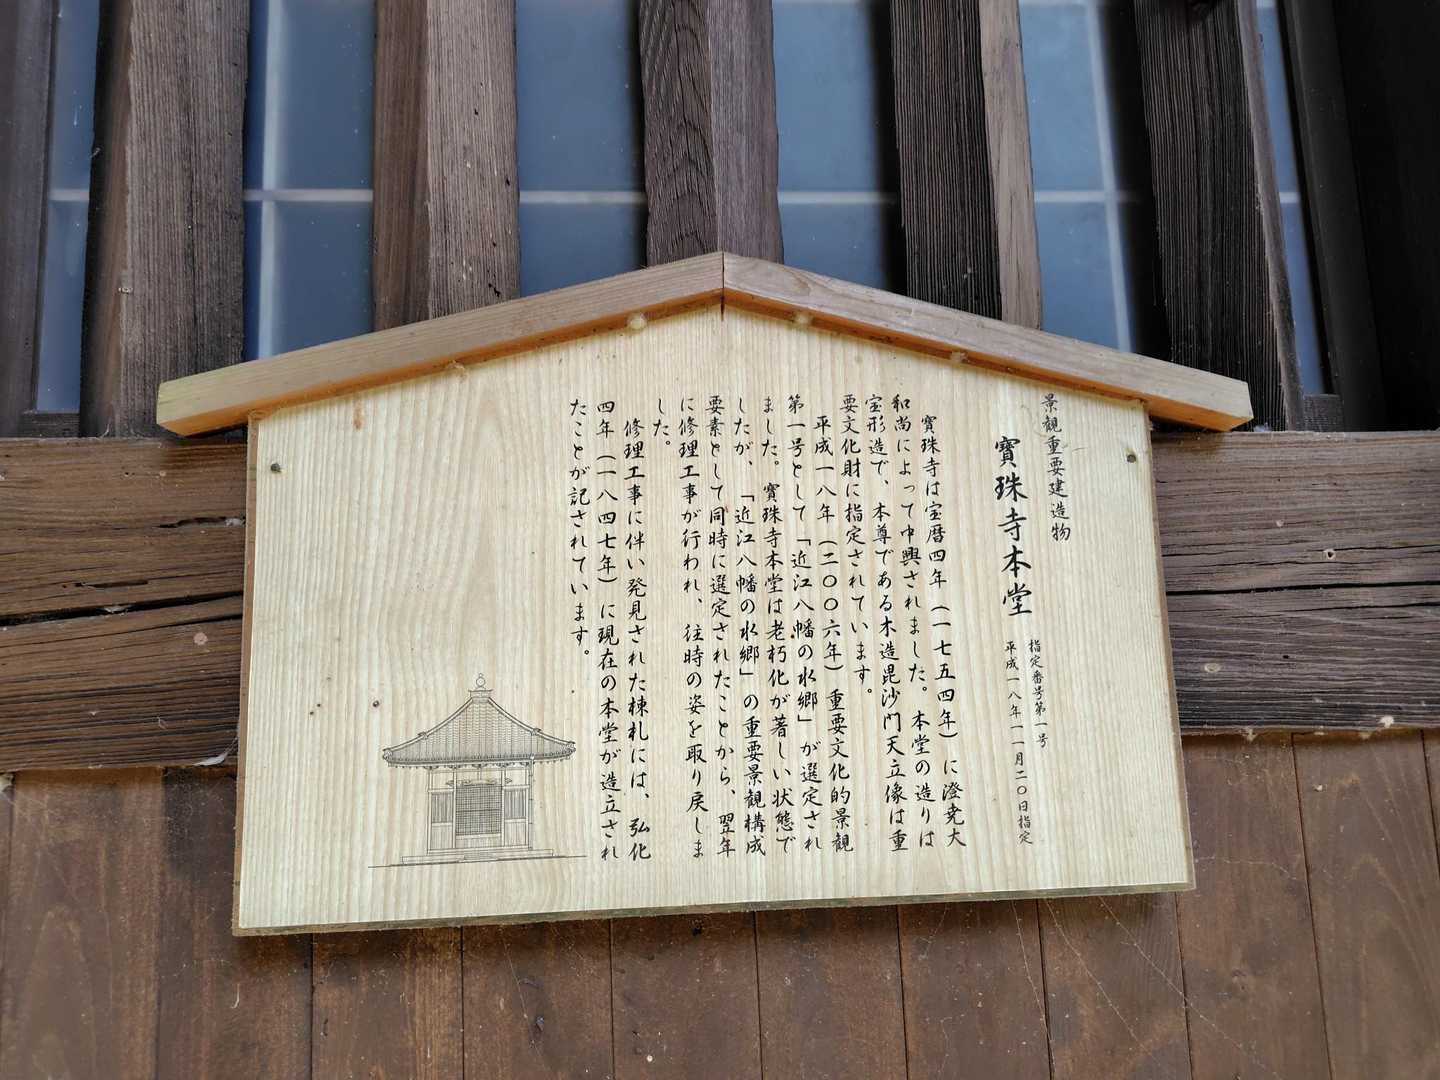 景観重要建造物
寶珠寺本堂
指定番号第一号
平成一八年一一月二〇日指定
寶珠寺は宝暦四年（一七五四年）に澄尭大
和尚によって中興されました。本堂の造りは
宝形造で、本尊である木造毘沙門天立像は重
要文化財に指定されています。
平成一八年（二〇〇六年）重要文化的景観
第一号として「近江八幡の水郷」が選定され
ました。寶珠寺本堂は老朽化が著しい状態で
したが、「近江八幡の水郷」の重要景観構成
要素として同時に選定されたことから、翌年
に修理工事が行われ、往時の姿を取り戻しま
した。
修理工事に伴い発見された棟札には、弘化
四年（一八四七年）に現在の本堂が造立され
たことが記されています。